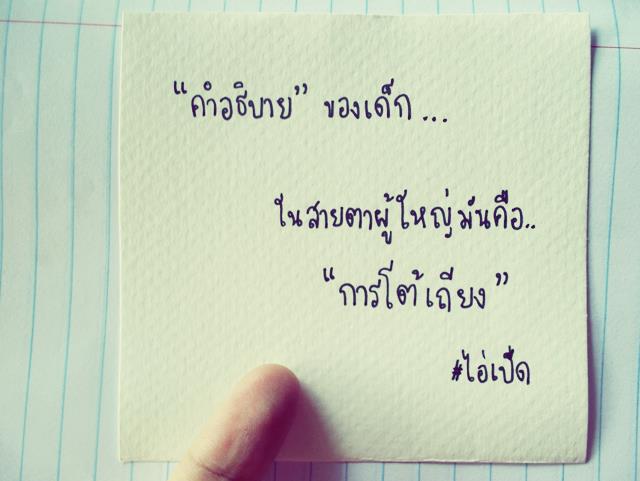 “คำอธิบาย” ของเด็ก...
ในสายตาผู้ใหญ่มันคือ..
“การโต้เถียง”
#ไอ่เปี๊ด